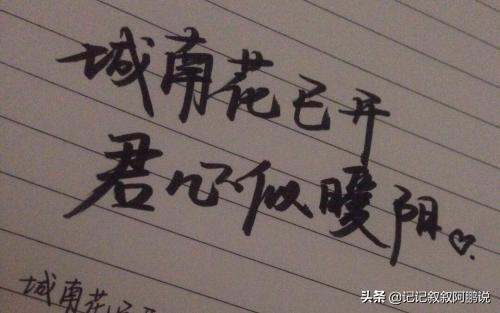 城南花已开
君似暖阳♡.
城南花已
头条 @记记叙叙阿鹏说